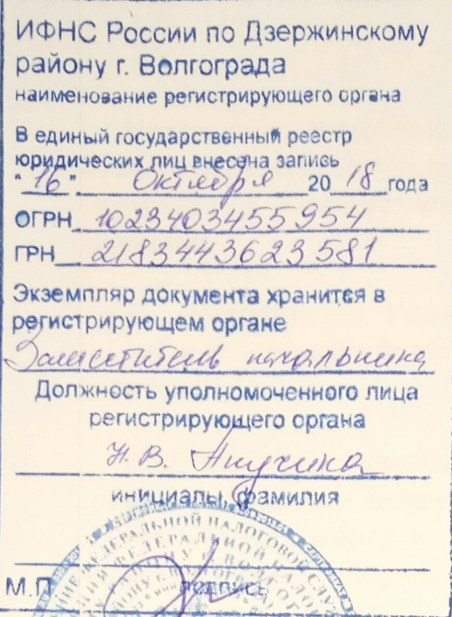 ИФНС России по Дзержинскому
району г. Волгограда
наименование регистрирующего органа
В единый государственный реестр
юридических лиц внесена запись
"16" октября 2018 года
ОГРН 1023403455954
ГРН 2183443623581
Экземпляр документа хранится в
регистрирующем органе
Заместитель начальника
Должность уполномоченного лица
регистрирующего органа
Н.В.
инициалы, фамилия
ФЕДЕРАЛЬНОЙ НАЛОГОВОЙ
М.П. подпись